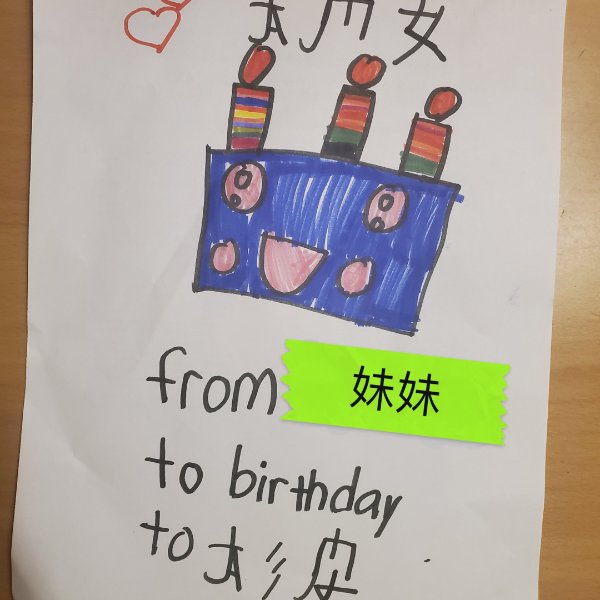 女
from 妹妹
to birthday
to 杉皮